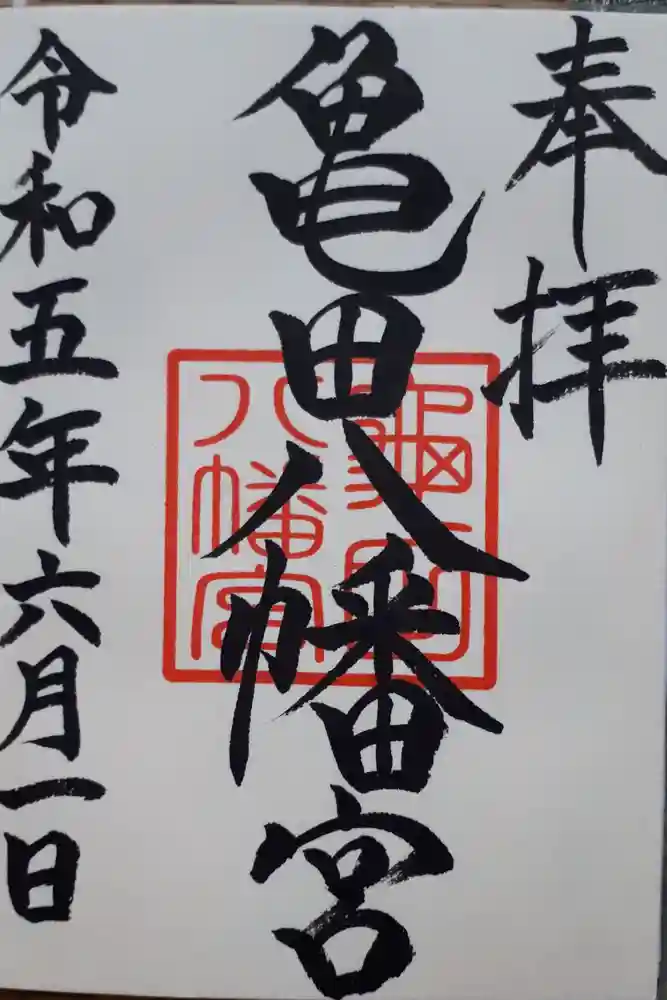 奉拝
亀田八幡宮
令和五年六月一日
八幡宮